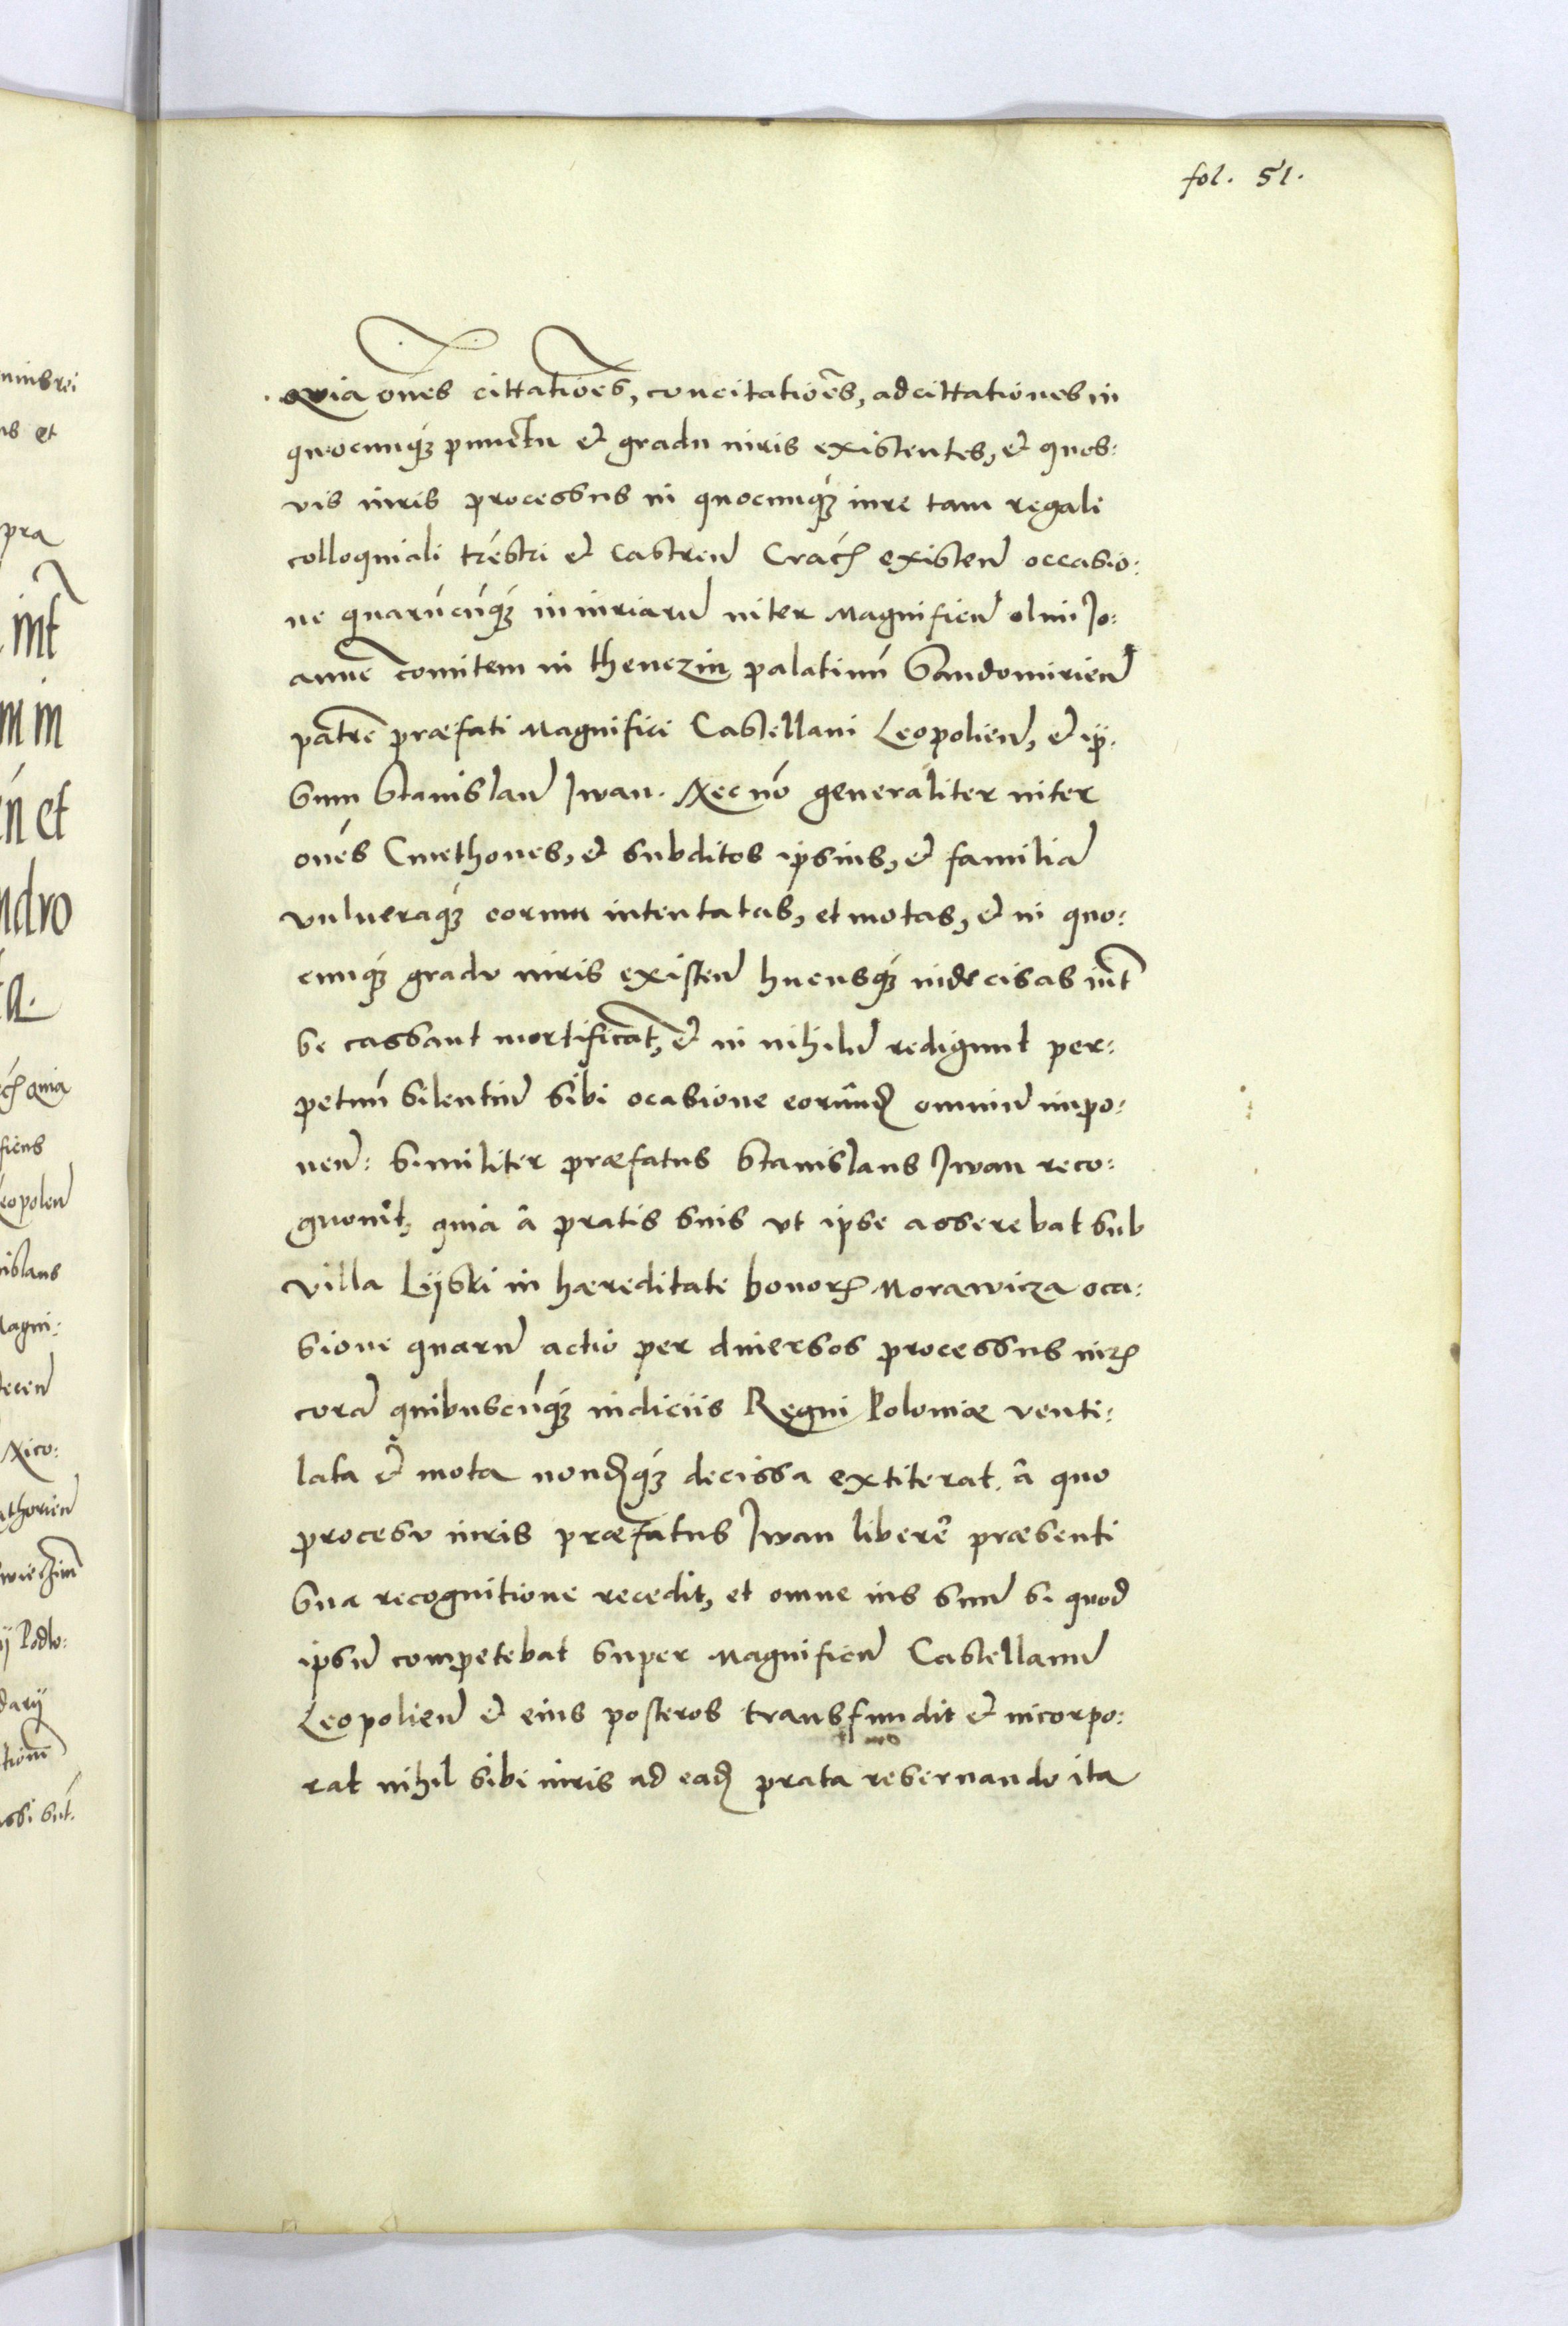 fol. 51.
Quia oñes cittatiões, concitatiões, adcittationes in
quocunq́ʒ punctu et gradu iuris existentes, et quos:
vis iuris processus in quocunq́ʒ iure tam regali
colloquiali trẽstri et Castreñ Crac̃ existeñ occasio:
ne quarũcũq́ʒ iniuriarũ inter Magnificũ olim Jo:
annẽ Comitem in Thenczin palatinũ Sandomirieñ
patrẽ præfati Magnifici Castellani Leopolieñ, et ip:
sum Stanislaũ Jwan. Nec nõ generaliter inter
oñes Cmethones, et subditos ipsius, et familiã
vulneraq́ʒ eorum intentatas, et motas, et in quo:
cunq́ʒ gradu iuris existeñ hucusq́ʒ indecisas int̃
se cassant mortificãt, et in nihilũ redigunt per:
petuũ silentiũ sibi ocasione eorũnd̃ omniũ impo:
neñ: Similiter præfatus Stanislaus Jwan reco:
gnouit, quia â pratis suis vt ipse asserebat sub
villa Lijski in hæreditate bonor̃ Morawicza oca:
sione quarũ actio per diuersos processus iur̃
corã quibuscũq́ʒ iudiciis Regni Poloniæ venti:
lata et mota nond̃q́ʒ decissa extiterat. â quo
procesu iuris præfatus Jwan liberè præsenti
sua recognitione recedit, et omne ius suũ si quod
ipsũ competebat super Magnificũ Castellanũ
Leopolieñ et eius posteros transfundit et incorpo:
rat nihil sibi iuris ad ead̃ prata reseruando ita